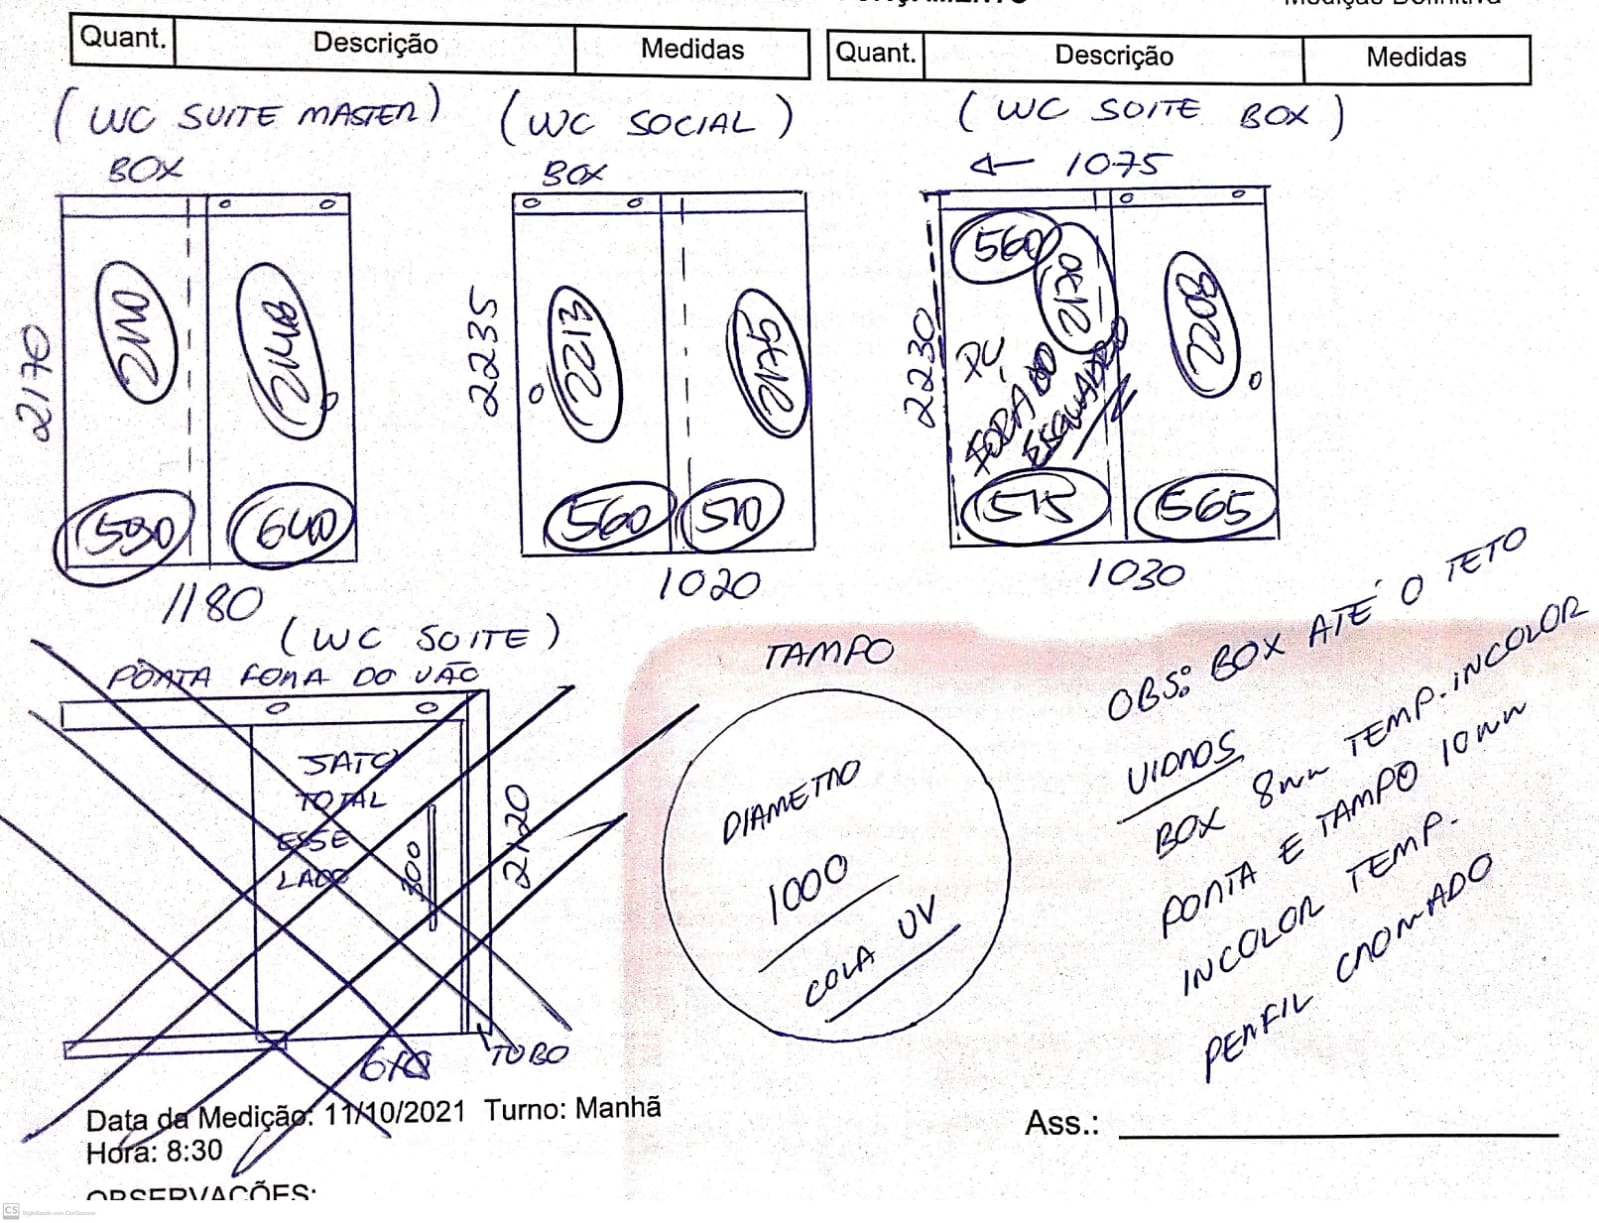 Quant. Descrição Medidas
Quant. Descrição Medidas
(WC SUITE MASTER)
BOX
2170
2110
2148
590
640
1180
(WC SOCIAL)
BOX
2235
2213
2175
560
510
1020
(WC SUITE BOX)
← 1075
2230
560
2170
2208
PÇ
FORA DO
ESQUADRO
515
565
1030
(WC SUITE)
PORTA FORA DO VÃO
JATO
TOTAL
ESSE
LADO
300
2120
TUBO
TAMPO
DIAMETRO
1000
COLA UV
OBS: BOX ATÉ O TETO
VIDROS
BOX 8mm TEMP. INCOLOR
PORTA E TAMPO 10mm
INCOLOR TEMP.
PERFIL CROMADO
Data da Medição: 11/10/2021 Turno: Manhã
Hora: 8:30
Ass.:
OBSERVAÇÕES:
CS Digitalizado com CamScanner